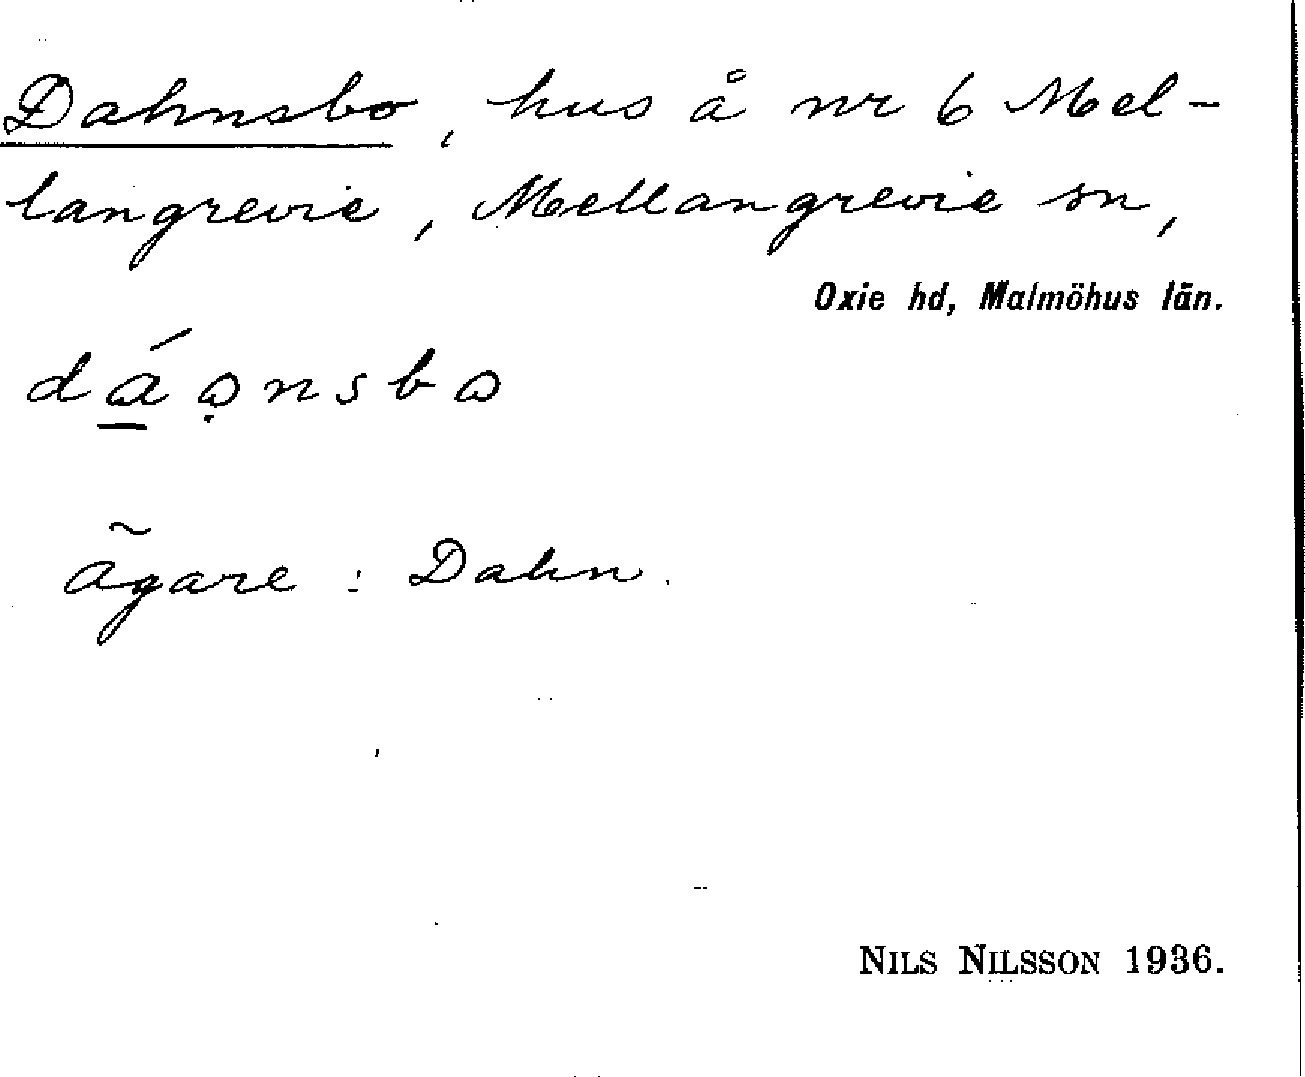 Dahnsbo, hus å nr 6 Mel-
langrevie, Mellangrevie sn,
Oxie hd, Malmöhus län.
ägare: Dahn.
NILS NILSSON 1936.